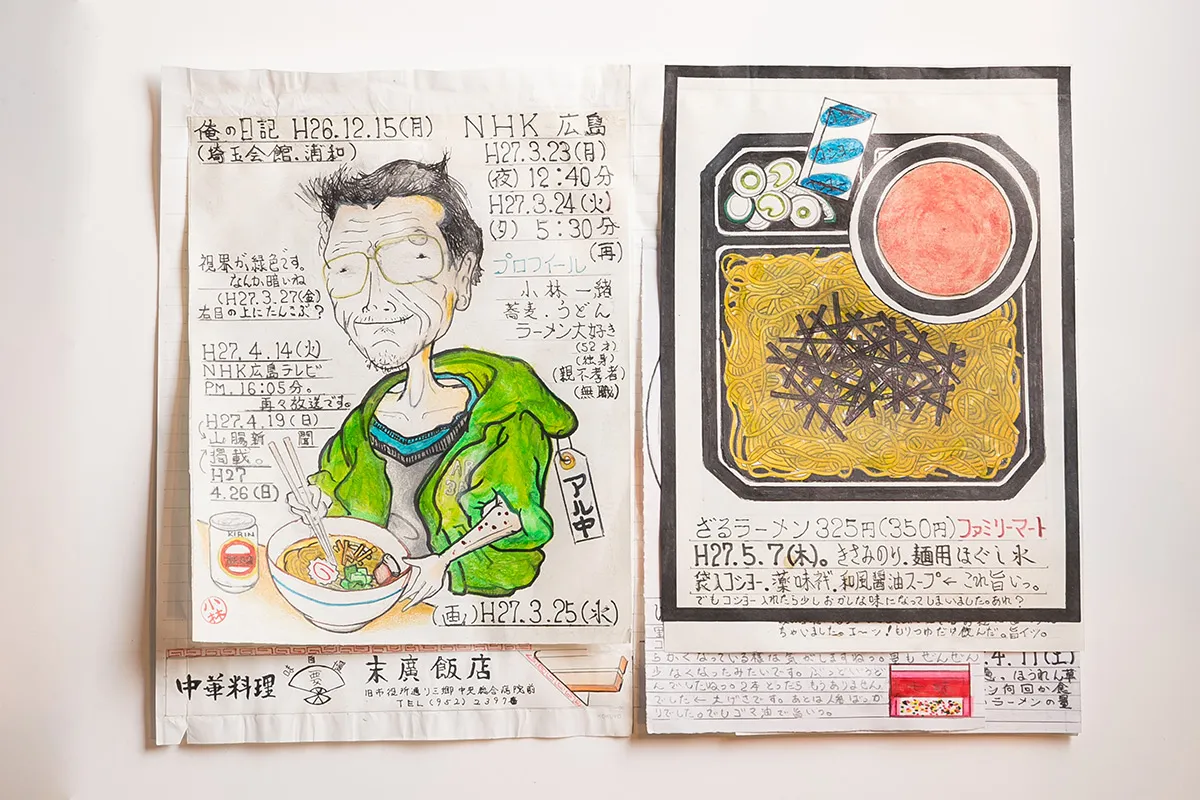 俺の日記 H26.12.15(月)
(埼玉会館.浦和)
NHK 広島
H27.3.23(月)
(夜) 12:40分
H27.3.24(火)
(夕) 5:30分
(再)
プロフィール
小林一緒
蕎麦.うどん
ラーメン大好き
(52才)
(独身)
(親不孝者)
(無職)
視界が緑色です。
なんか暗いね
(H27.3.27(金)
右目の上にたんこぶ?
H27.4.14(火)
NHK広島テレビ
PM.16:05分。
再々放送です。
H27.4.19(日)
山陽新聞
掲載。
H27
4.26(日)
アル中
KIRIN
小林
(画)H27.3.25(水)
中華料理
末廣飯店
旧市役所通り三郷中央総合病院前
TEL(952)2397番
ざるラーメン 325円(350円)ファミリーマート
H27.5.7(木)。きざみのり、麺用ほぐし水
袋入コショー、薬味ネギ、和風醤油スープ← これ旨いっ。
でもコショー入れたら少しおかしな味になってしまいました。あれ?
ちゃいました。エ〜ッ!もりつゆだけ飲んだ。旨イッ。
少なくなったみたいです。
でした←大げさです。あとは人参ばっか
りでした。でもゴマ油で旨いっ。
.4.11(土)
、ほうれん草
ン何回か食
ラーメンの量